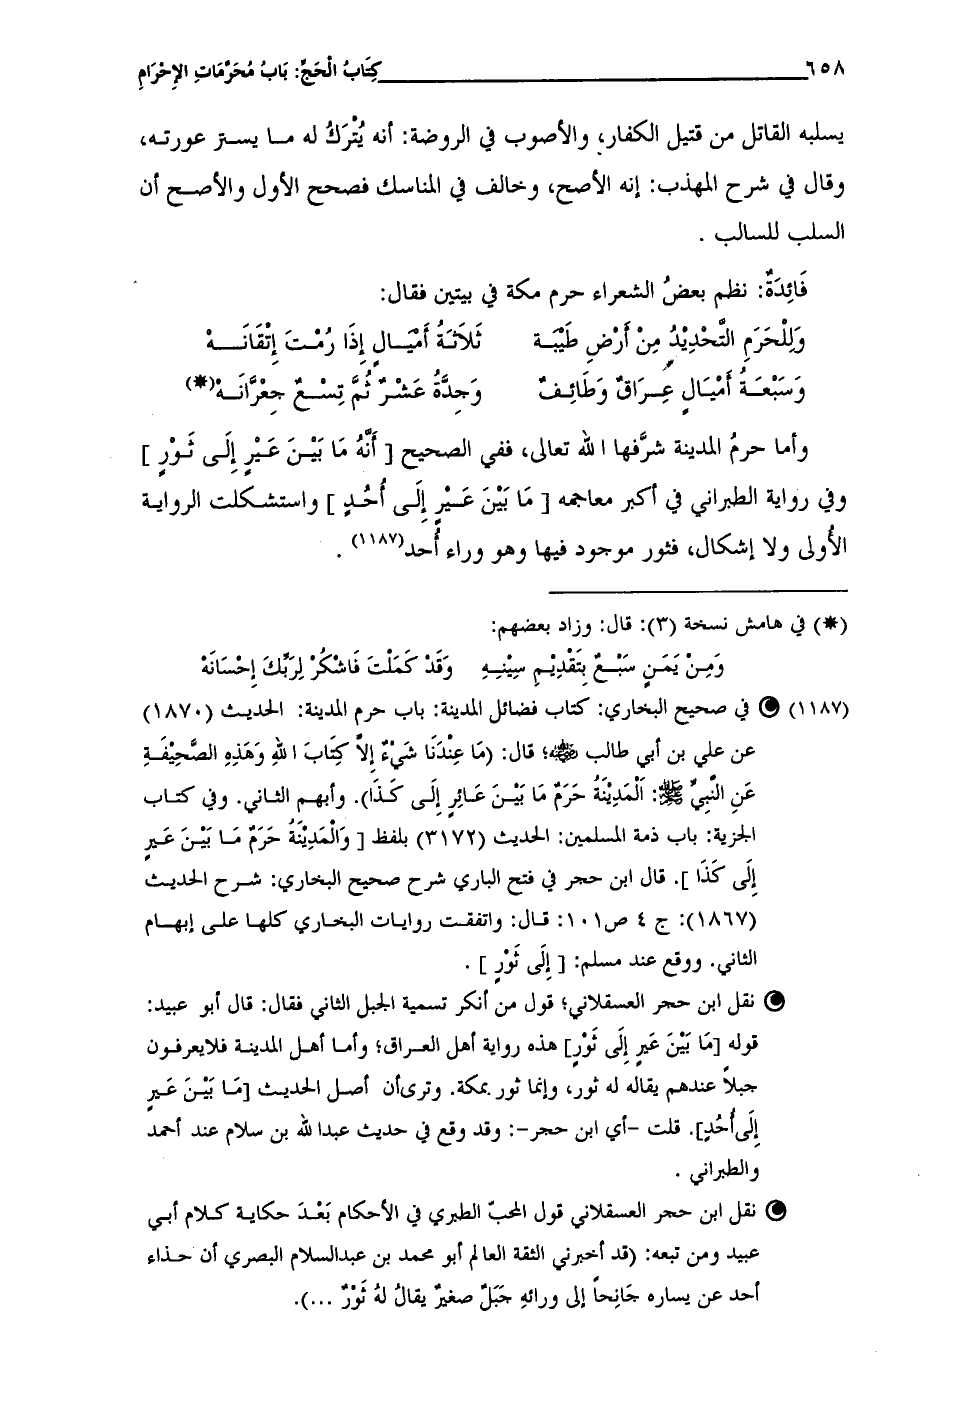 ٦٥٨ كِتَابُ الْحَجِّ: بَابُ مُحَرَّمَاتِ الإِحْرَامِ
يسلبه القاتل من قتيل الكفار، والأصوب في الروضة: أنه يُتْرَكُ له ما يستر عورته،
وقال في شرح المهذب: إنه الأصح، وخالف في المناسك فصحح الأول والأصح أن
السلب للسالب .
فَائِدَةٌ: نظم بعضُ الشعراء حرم مكة في بيتين فقال:
وَلِلْحَرَمِ التَّحْدِيْدُ مِنْ أَرْضِ طَيْبَة ثَلَاثَةُ أَمْيَالٍ إِذَا رُمْتَ إِتْقَانَهْ
وَسَبْعَةُ أَمْيَالٍ عِرَاقٌ وَطَائِفٌ وَجِدَّةُ عَشْرٌ ثُمَّ تِسْعٌ جِعْرَّانَهْ(*)
وأما حرمُ المدينة شرَّفها الله تعالى، ففي الصحيح [ أَنَّهُ مَا بَيْنَ عَيْرٍ إِلَى ثَوْرٍ ]
وفي رواية الطبراني في أكبر معاجمه [ مَا بَيْنَ عَيْرٍ إِلَى أُحُدٍ ] واستشكلت الرواية
الأُولى ولا إشكال، فثور موجود فيها وهو وراء أُحد(١١٨٧) .
(*) في هامش نسخة (٣): قال: وزاد بعضهم:
وَمِنْ يَمَنٍ سَبْعٌ بِتَقْدِيْمِ سِيْنِهِ وَقَدْ كَمَلَتْ فَاشْكُرْ لِرَبِّكَ إِحْسَانَهْ
(١١٨٧) في صحيح البخاري: كتاب فضائل المدينة: باب حرم المدينة: الحديث (١٨٧٠)
عن علي بن أبي طالب ﵁؛ قال: (مَا عِنْدَنَا شَيْءٌ إِلاَّ كِتَابَ اللهِ وَهَذِهِ الصَّحِيْفَةِ
عَنِ النَّبِيِّ ﷺ: اَلْمَدِيْنَةُ حَرَمٌ مَا بَيْنَ عَائِرٍ إِلَى كَذَا). وأبهم الثاني. وفي كتاب
الجزية: باب ذمة المسلمين: الحديث (٣١٧٢) بلفظ [ وَالْمَدِيْنَةُ حَرَمٌ مَا بَيْنَ عَيرٍ
إِلَى كَذَا ]. قال ابن حجر في فتح الباري شرح صحيح البخاري: شرح الحديث
(١٨٦٧): ج ٤ ص١٠١: قال: واتفقت روايات البخاري كلها على إبهام
الثاني. ووقع عند مسلم: [ إِلَى ثَوْرٍ ] .
نقل ابن حجر العسقلاني؛ قول من أنكر تسمية الجبل الثاني فقال: قال أبو عبيد:
قوله [مَا بَيْنَ عَيرٍ إِلَى ثَوْرٍ] هذه رواية أهل العراق؛ وأما أهل المدينة فلايعرفون
جبلاً عندهم يقاله له ثور، وإنما ثور بمكة. وترىأن أصل الحديث [مَا بَيْنَ عَيرٍ
إِلَى أُحُدٍ]. قلت -أي ابن حجر-: وقد وقع في حديث عبدالله بن سلام عند أحمد
والطبراني .
نقل ابن حجر العسقلاني قول المحبّ الطبري في الأحكام بَعْدَ حكاية كلام أبي
عبيد ومن تبعه: (قد أخبرني الثقة العالم أبو محمد بن عبدالسلام البصري أن حذاء
أحد عن يساره جَانِحاً إلى ورائهِ جَبَلٌ صغيرٌ يقالُ لهُ ثَوْرٌ ...).